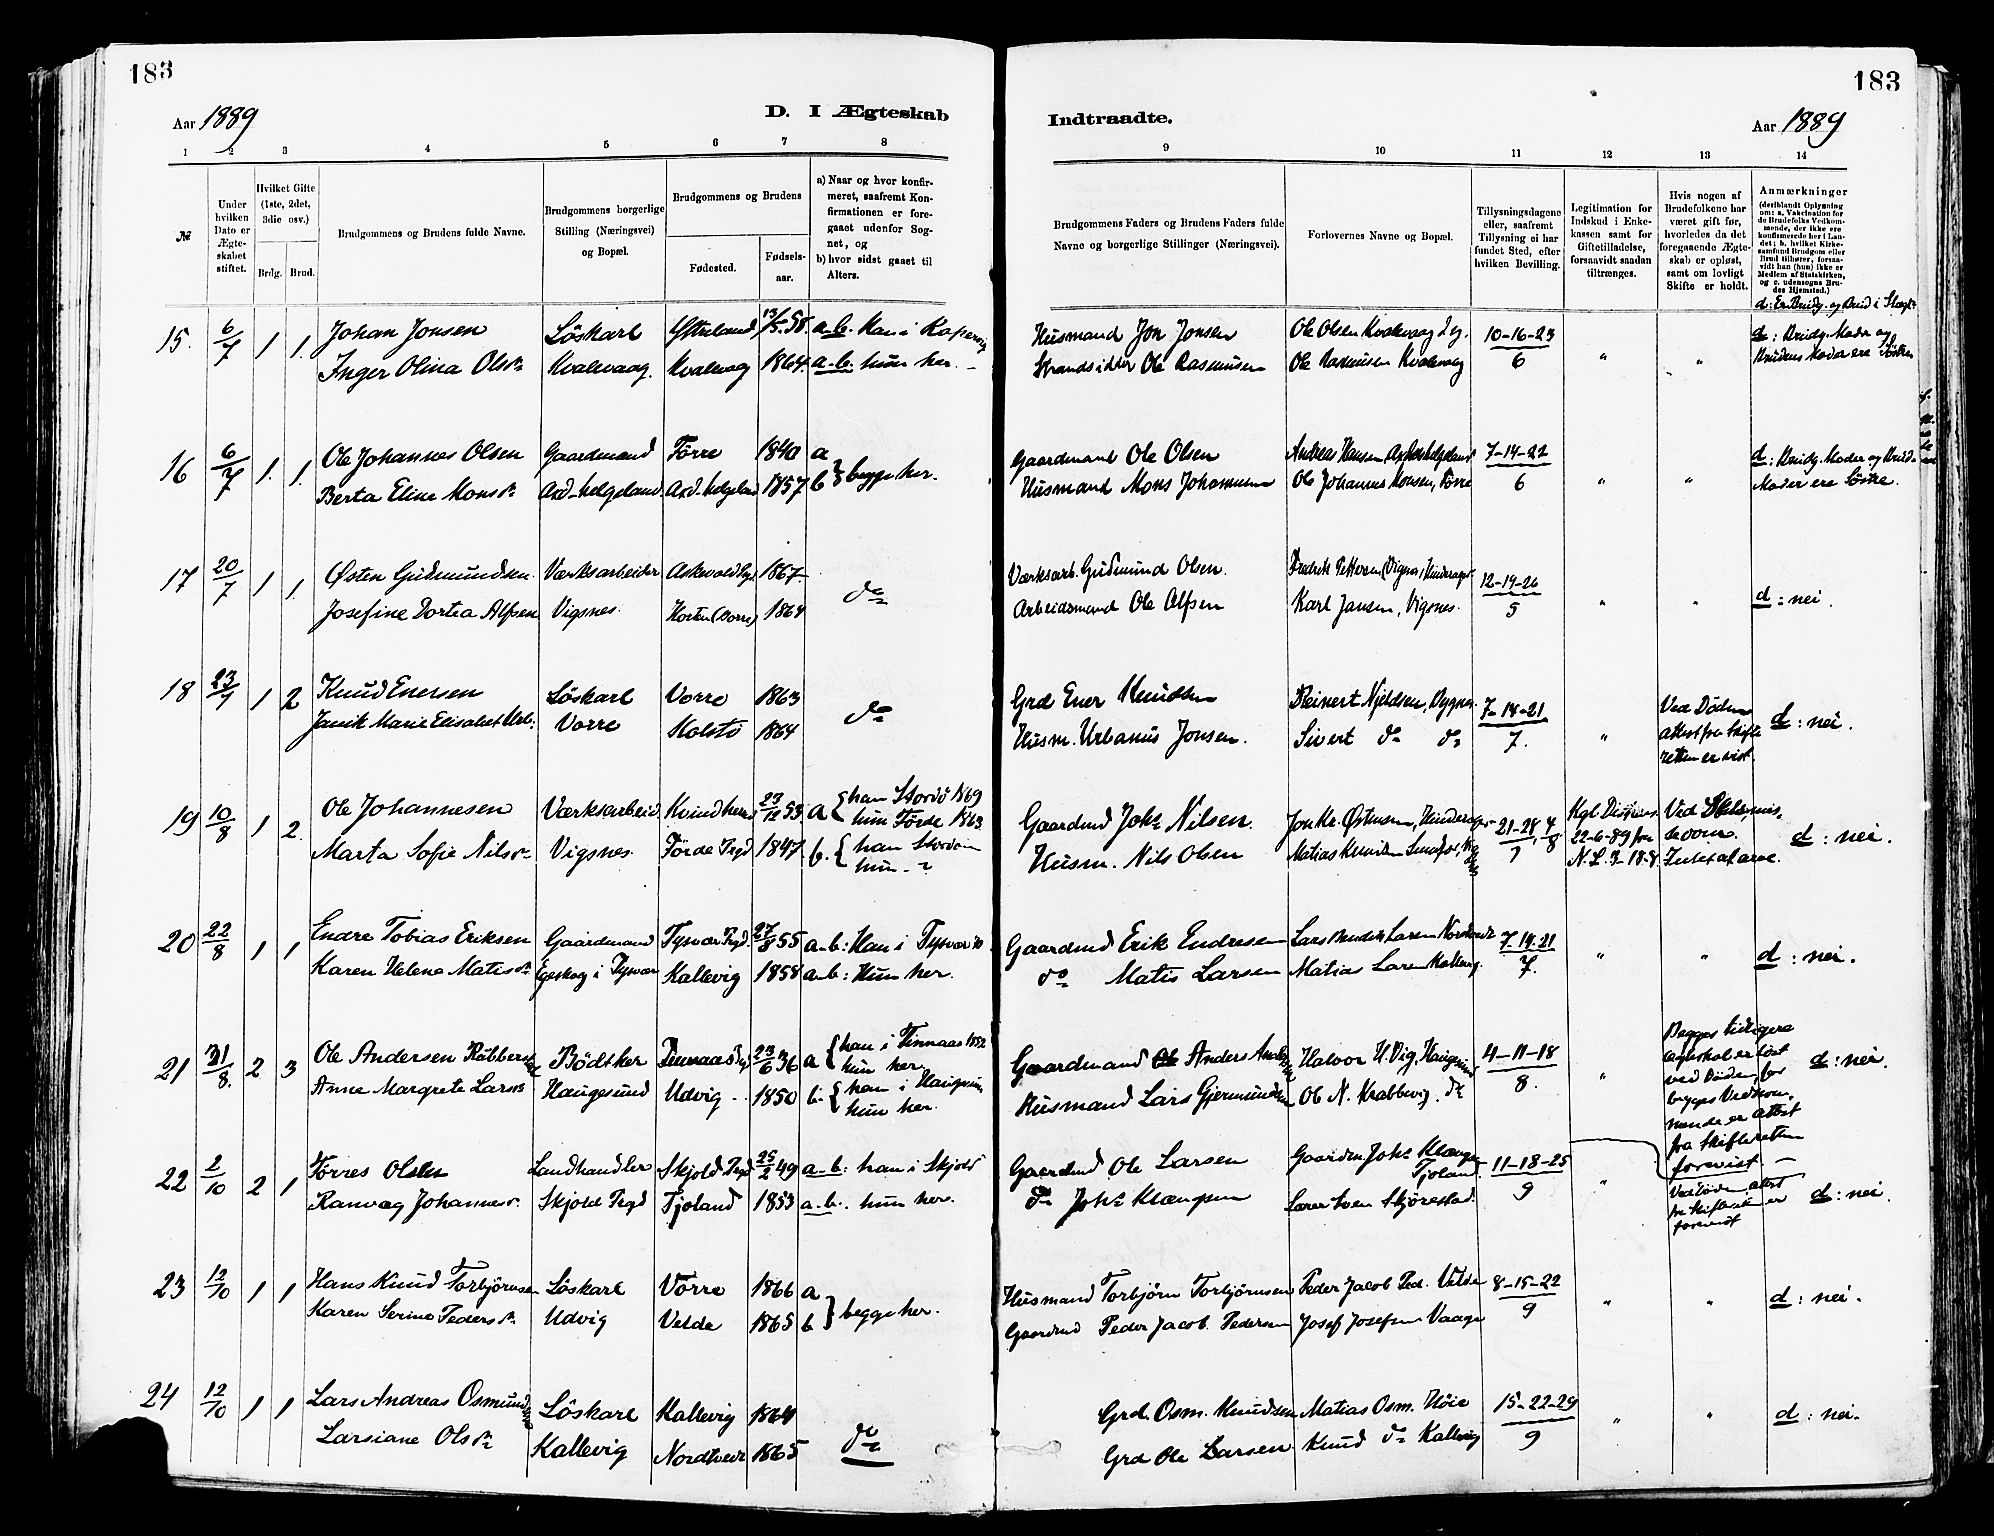 183
183
Aar 1889
D. I Ægteskab
Indtraadte.
Aar 1889
1 2 3 4 5 6 7 8
9 10 11 12 13 14
№
Under hvilken Dato er Ægteskabet stiftet.
Hvilket Gifte (1ste, 2det, 3die osv.)
Brdg. Brud.
Brudgommens og Brudens fulde Navne.
Brudgommens borgerlige Stilling (Næringsvei) og Bopæl.
Brudgommens og Brudens
Fødested.
Fødselsaar.
a) Naar og hvor konfirmeret, saafremt Konfirmationen er foregaaet udenfor Sognet, og
b) hvor sidst gaaet til Alters.
Brudgommens Faders og Brudens Faders fulde Navne og borgerlige Stillinger (Næringsvei).
Forlovernes Navne og Bopæl.
Tillysningsdagene eller, saafremt Tillysning ei har fundet Sted, efter hvilken Bevilling.
Legitimation for Indskud i Enkekassen samt for Giftetilladelse, forsaavidt saadan tiltrænges.
Hvis nogen af Brudefolkene har været gift før, hvorledes da det foregaaende Ægteskab er opløst, samt om lovligt Skifte er holdt.
Anmærkninger (deriblandt Oplysning om: a. Vakcination for de Brudefolks Vedkommende, der ikke ere konfirmerede her i Landet; b. hvilket Kirkesamfund Brudgom eller Brud tilhører, forsaavidt han (hun) ikke er Medlem af Statskirken, og c. udensogns Brudes Hjemsted.)
d: Er Brudg. og Brud i Slægt
15. 6/7 1 1. Johan Jonsen Løskarl 13/5 58. a-b. Han i Kopervig Husmand Jon Jonsen Ole Olsen Kvalevaag 10-16-23 d: Brudg. Moder og
Inger Olina Olsdr Kvalevaag. Kvalevaag 1864. a-b. hun her. Strandsidder Ole Rasmusen Ole Rasmusen Kvalevaag 6 " " Brudens Moder ere Søstre
16 6/7 1. 1. Ole Johannes Olsen Gaardmand Førre 1840 a Gaardmand Ole Olsen Andreas Hansen 7-14-22 d: Brudg. Moder og Brud.
Berta Eline Monsdr Axd-helgeland Axd-helgeland 1857 b } begge her. Husmand Mons Johannesen Ole Johannes Monsen, Førre 6 " " Moder ere Søstre.
17 20/7 1 1. Østen Gudmundsen Værksarbeider 1867 do Værksarb. Gudmund Olsen. Fredrik Pettersen 12-19-26
Josefine Dortea Alfsen Vigsnes. Horten (Borre) 1864 Arbeidsmand Ole Alfsen Karl Jansen, Vigsnes. 5 " " d: nei.
18 23/7 1 2 Knud Enersen Løskarl Vorre 1863 do Grd Ener Knudsen Reinert Njeldsen, Vygnes 7-14-21 Ved Døden
Janik Marie Elisabet Urb: Vorre Kolstø 1864 Husm. Urbanus Jonsen. Sivert do do 7. " attest fra Skifteretten er vist. d: nei.
19 10/8 1 2. Ole Johannesen Værksarbeid Kvindherred 23/12 53 a { han Stordø 1869 hun Førde 1863. Gaardmd Johs Nilsen. Jon Kr. Østensen, 21-28, 4 Kgl Dispens.
Marta Sofie Nilsdr Vigsnes. Førde Prgd 1847 b. { han Stordøen hun - " Husm. Nils Olsen Matias Knudsen 7 8 22-6-89 fra N. L. 3-18-8. d: nei.
20 22/8 1 1 Endre Tobias Eriksen Gaardmand Tysvær Prgd. 27/8 55 a-b: Han i Tysvær Gaardmd Erik Endresen Lars Bendik Larsen 7-14-21
Karen Helene Matisdr Egeskog i Tysvær Kallevig 1858 a-b: Hun her. do Matis Larsen Matias Larsen Kallevig. 7. " " d: nei.
21 31/8. 2 3 Ole Andersen Bødtker 23/6 36 a { han i Finnaas 1852 hun her. Gaardmand Anders Halvor H. Vig, Haugesund 4-11-18 Begges tidligere
Anne Margrete Larsdr Haugesund Udvig 1850 b. { han i Haugesund hun her. Husmand Lars Gjermundsen Ob N. Krabbevig. do 8. " Ægteskab er løst ved Døden, for begges Vedkommende er attest fra Skifteretten forevist d: nei.
22 2/10 2 1 Tørres Olsen Landhandler Skjold Prgd 25/2 49 a-b: han i Skjold Gaardmd Ole Larsen Gaardm. Johs Klængs. Tjoland 11-18-25
Ranvag Johannesdr. Skjold Prgd Tjoland 1853 a-b. hun her. do Johs Klængsen Lærer Sven Skjørestad. 9 " Ved Døden attest fra Skifterett er forevist d: nei.
23 12/10 1 1 Hans Knud Torbjørnsen Løskarl Vorre 1866 a Husmand Torbjørn Torbjørnsen Peder Jacob Ped. Velde 8-15-22
Karen Serine Pedersdr. Udvig Velde 1865 b } begge her. Gaardmd Peder Jacob Pedersen Josef Josefsen Vaage 9 " " d: nei.
24 12/10 1 1 Lars Andreas Osmundsen Løskarl Kallevig 1864 Grd. Osm. Knudsen Matias Osm. Høie 15-22-29
Larsiane Olsdr Kallevig 1865 do Grd Ole Larsen Knud do Kallevig 9 " " d: nei.